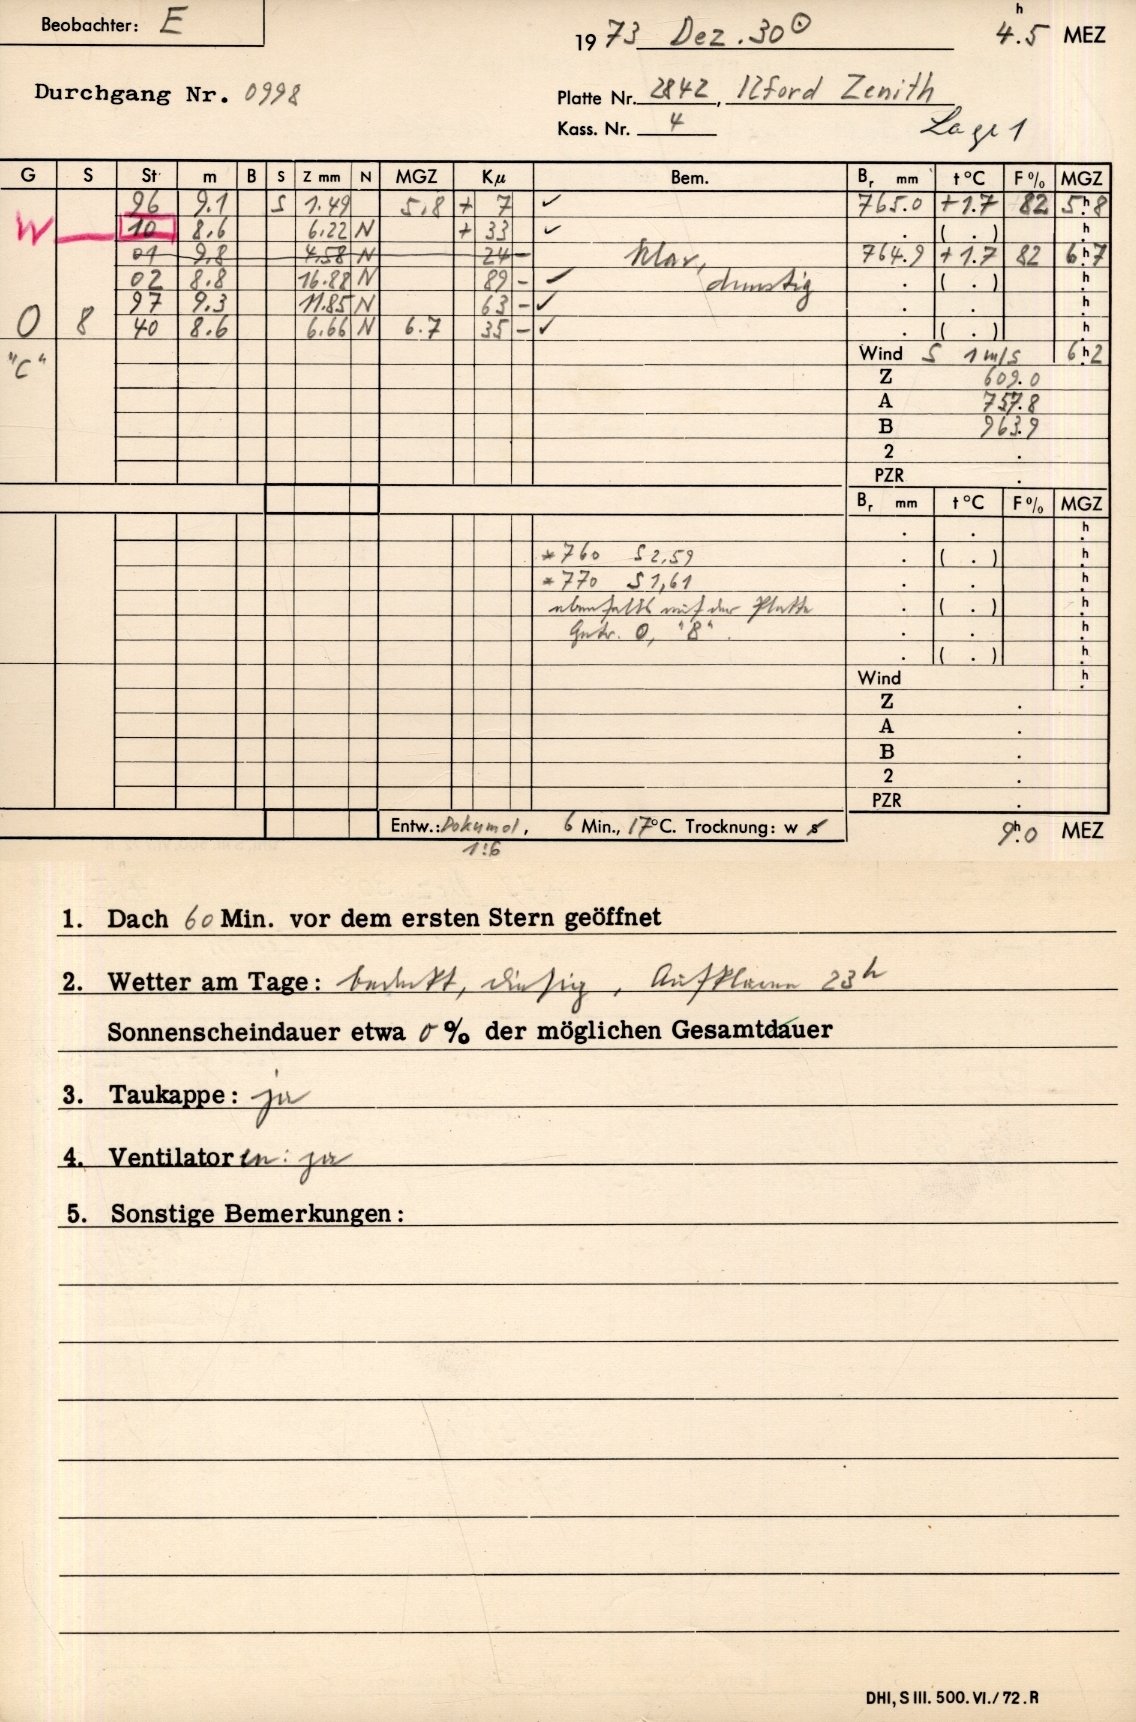 Beobachter: E
1973 Dez. 30 ⊙ 4h.5 MEZ
Durchgang Nr. 0998
Platte Nr. 2842, Ilford Zenith
Kass. Nr. 4 Lage 1
G S St m B S Z mm N MGZ Kμ Bem. Br mm t °C F % MGZ
96 9.1 S 1.49 5.8 + 7 ✓ 765.0 +1.7 82 5h.8
W 10 8.6 6.22 N + 33 ✓ . ( . ) h.
01 9.8 4.58 N 24 - klar, 764.9 +1.7 82 6h.7
02 8.8 16.88 N 89 - ✓ dunstig . ( . ) h.
97 9.3 11.85 N 63 - ✓ . . h.
O 8 40 8.6 6.66 N 6.7 35 - ✓ . ( . ) h.
"C" Wind S 1 m/s 6h.2
Z 609.0
A 757.8
B 963.9
2 .
PZR .
Br mm t °C F % MGZ
. . h.
*760 S 2,59 . ( . ) h.
*770 S 1,61 . . h.
ebenfalls auf der Platte . ( . ) h.
O, "8". . . h.
. ( . ) h.
Wind h.
Z .
A .
B .
2 .
PZR .
Entw.: Dokumol, 6 Min., 17°C. Trocknung: w s
1:6
9h.0 MEZ
1. Dach 60 Min. vor dem ersten Stern geöffnet
2. Wetter am Tage: bedeckt, diesig, Aufklaren 23h
Sonnenscheindauer etwa 0 % der möglichen Gesamtdauer
3. Taukappe: ja
4. Ventilatoren: ja
5. Sonstige Bemerkungen:
DHI, S III. 500. VI./72. R